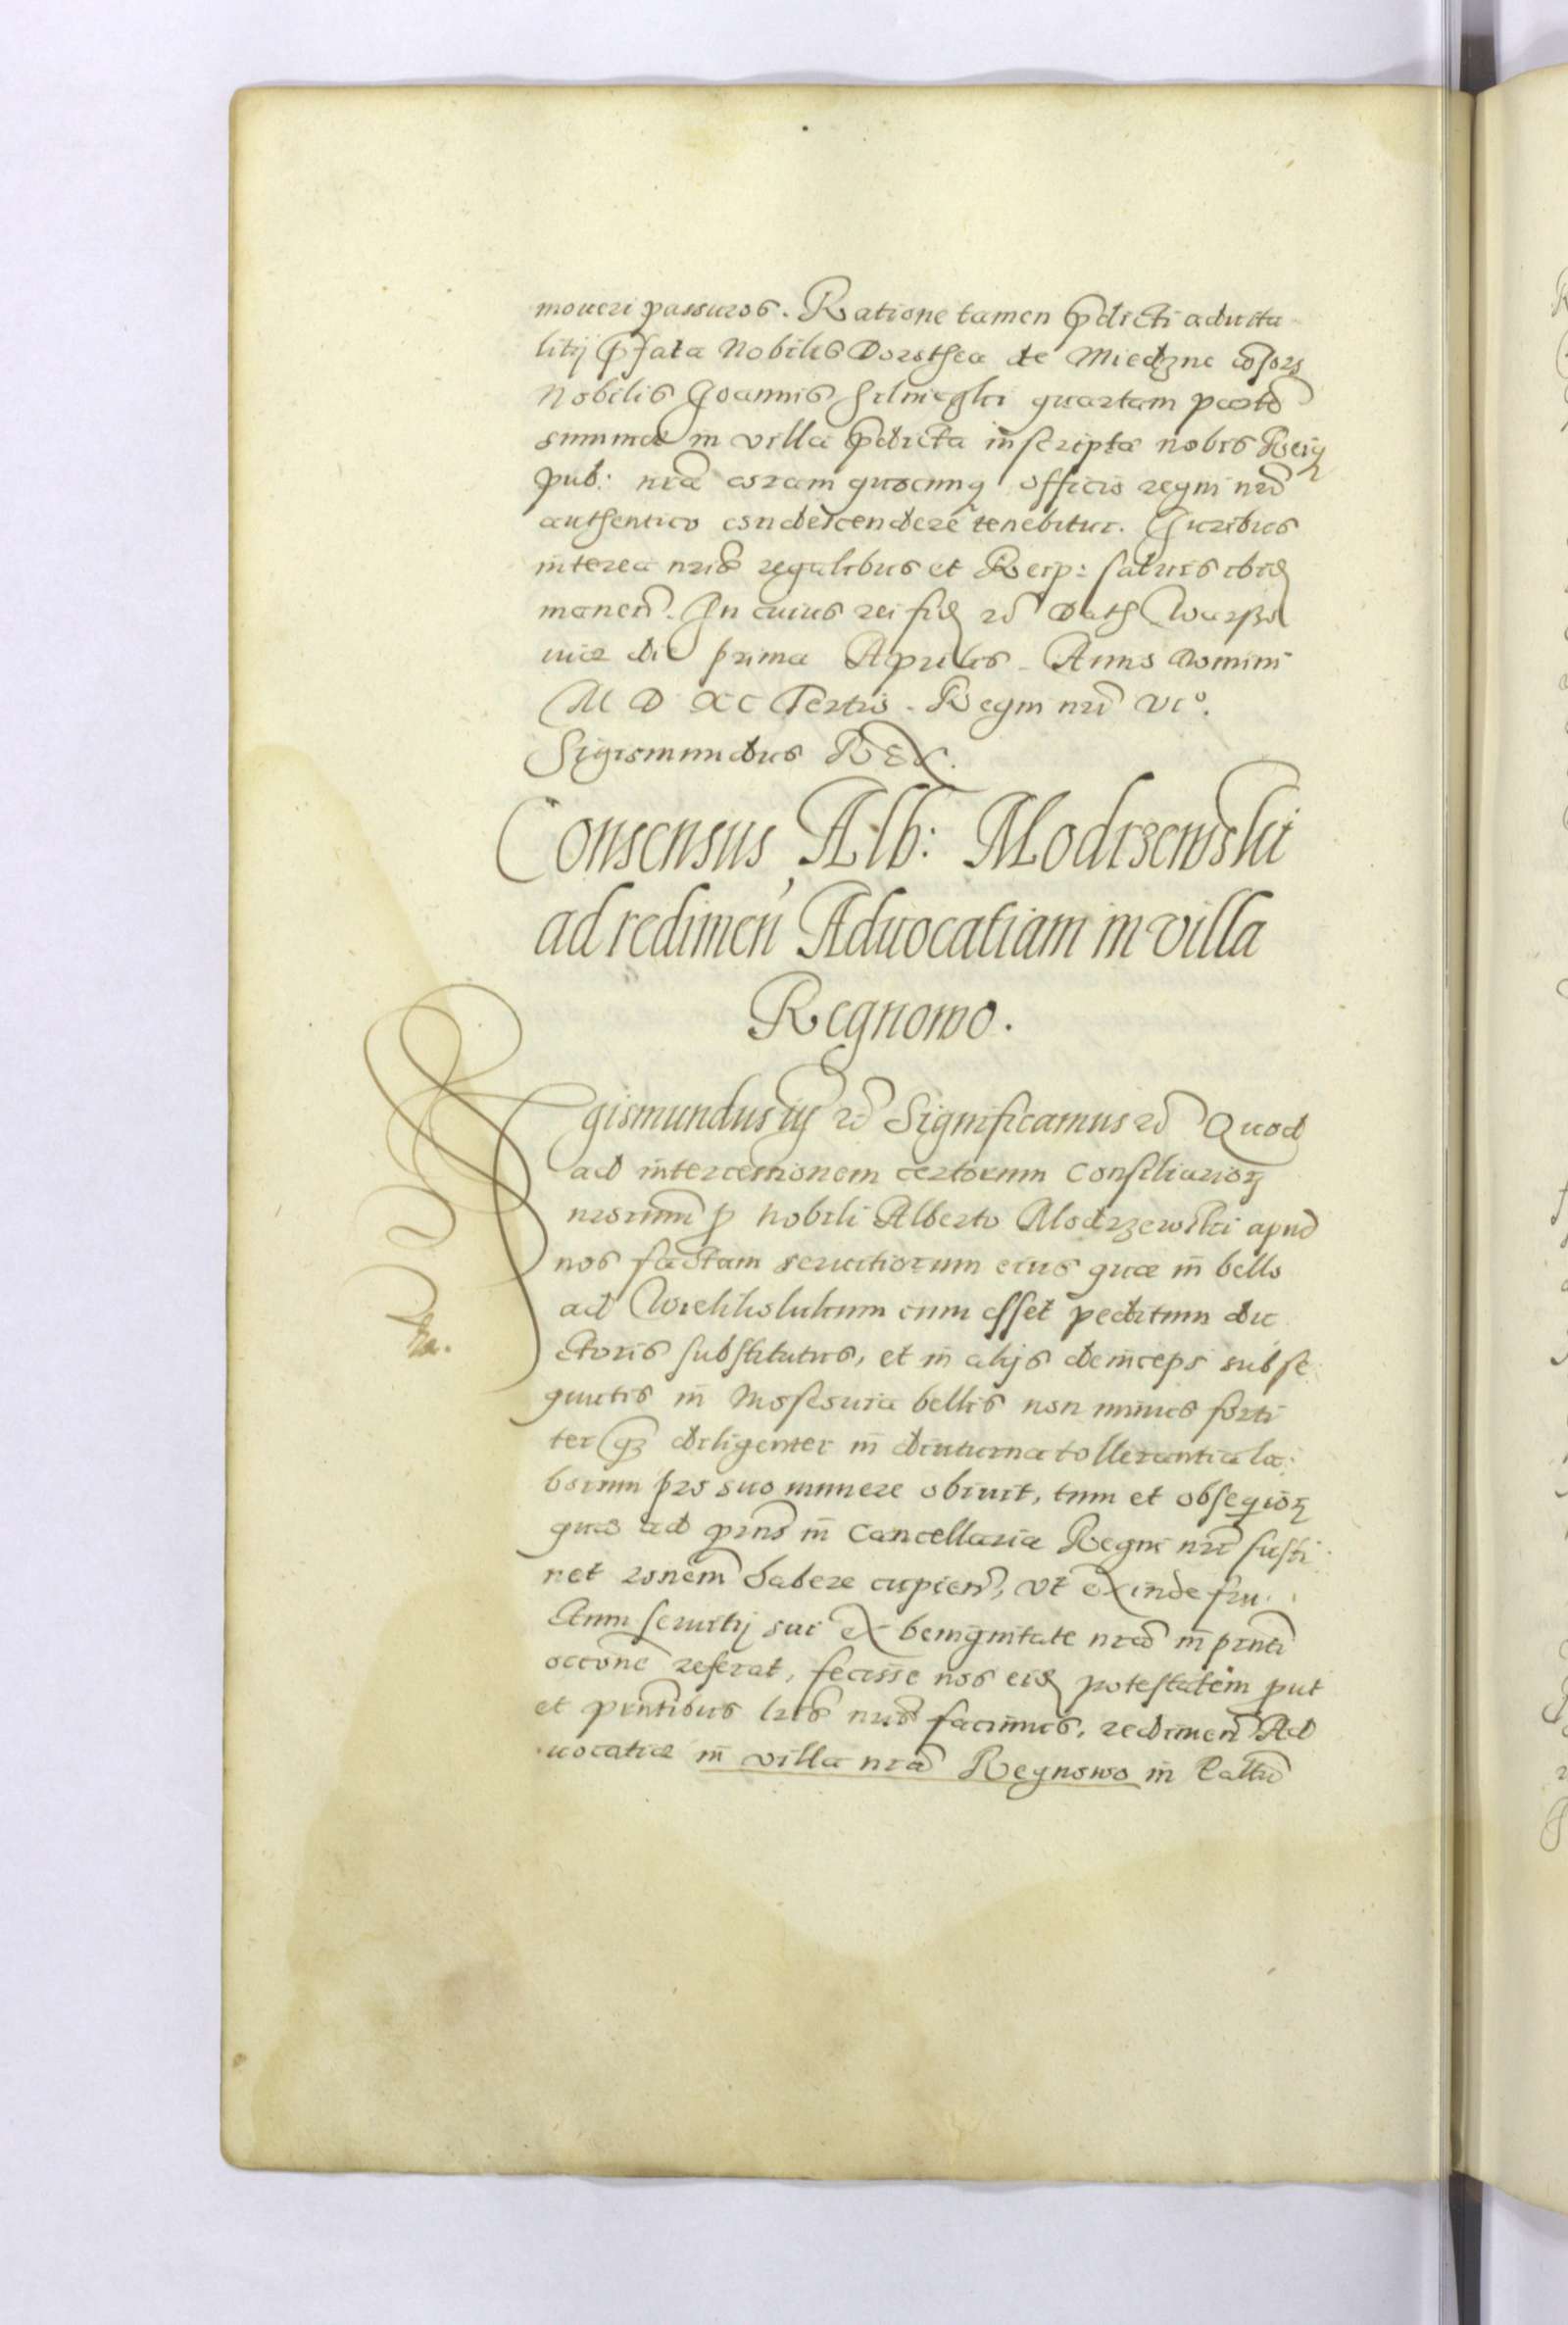 moueri passuros. Ratione tamen p̄dicti aduita
litij p̄fata Nobilis Dorothea de Miedzne cōsors
Nobilis Joannis quartam partē
summae in villa p̄dicta inscriptae nobis Reiq
pub: nrae coram quocunq officio regni nrī
authentico condescendere tenebitur. Juribus
interea nris regalibus et Reip: saluis ibid
manen. In cuius rei fid rc Dat Warsso
uiae die prima Aprilis Anno Domini
M D XC Tertio. Regni nrī VIº.
Sigismundus REX.
Consensus Alb: Modrzewski
ad redimen Aduocatiam in villa
Regnowo.
Sigismundus iij rc Significamus rc Quod
ad intercessionem certorum Consiliarioꝝ
nrorum p Nobili Alberto Modrzewski apud
nos factam seruitiorum eius quae in bello
ad Wielikolukum cum esset peditum du
ctoris substitutus, et in alijs deinceps subse
quutis in Moscouia bellis non minus forti
ter qz diligenter in diuturna tollerantia la:
borum pro suo munere obiuit, tum et obsequioꝝ
quae ad prns in Cancellaria Regni nrī susti
net ronem habere cupien, vt exinde fru
ctum seruitij sui ex benignitate nra in prnti
occone referat, fecisse nos eid potestatem put
et prntibus lris nris facimus, redimen Ad
uocatiae in villa nra Regnowo in